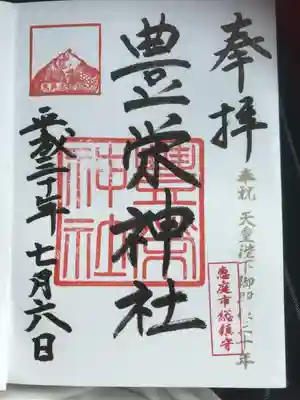 奉拝
奉祝 天皇陛下御即位三十年
恵庭市総鎮守
豊栄神社
豊栄
神社
平成三十年七月六日